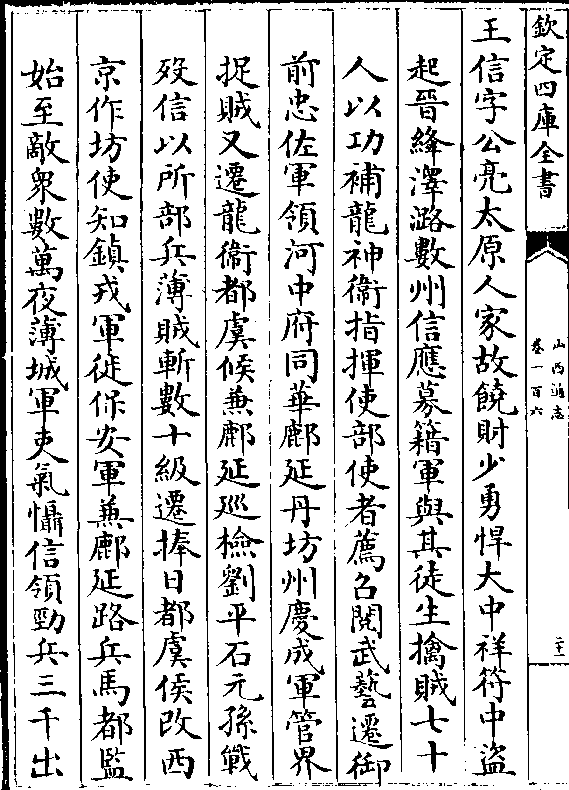 欽定四庫全書
山西通志
卷一百六
二十
王信字公亮太原人家故饒財少勇悍大中祥符中盜
起晉絳澤潞數州信應募籍軍與其徒生擒賊七十
人以功補龍神衛指揮使部使者薦召閱武藝遷御
前忠佐軍領河中府同華鄜延丹坊州慶成軍管界
捉賊又遷龍衛都虞候兼鄜延巡檢劉平石元孫戰
歿信以所部兵薄賊斬數十級遷捧日都虞侯改西
京作坊使知鎮戎軍徙保安軍兼鄜延路兵馬都監
始至敵衆數萬夜薄城軍吏氣懾信領勁兵三千出